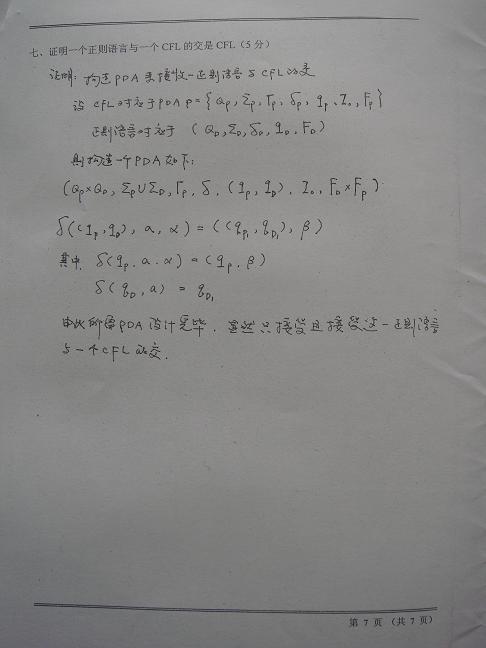 七、证明一个正则语言与一个 CFL 的交是 CFL（5 分）
证明：构造PDA来接收一正则语言与CFL的交
设 CFL对应于PDA P = { Qp, Σp, Γp, δp, qp, Z0, Fp }
正则语言对应于 ( QD, ΣD, δD, qD, FD )
则构造一个PDA如下：
( Qp×QD, Σp∪ΣD, Γp, δ, (qp, qD), Z0, FD×Fp )
δ((qp, qD), a, α) = ((qp1, qD1), β)
其中 δ(qp, a, α) = (qp, β)
δ(qD, a) = qD1
由此所需PDA设计完毕，显然只接受且接受这一正则语言
与一个CFL的交.
第 7 页 （共 7 页）